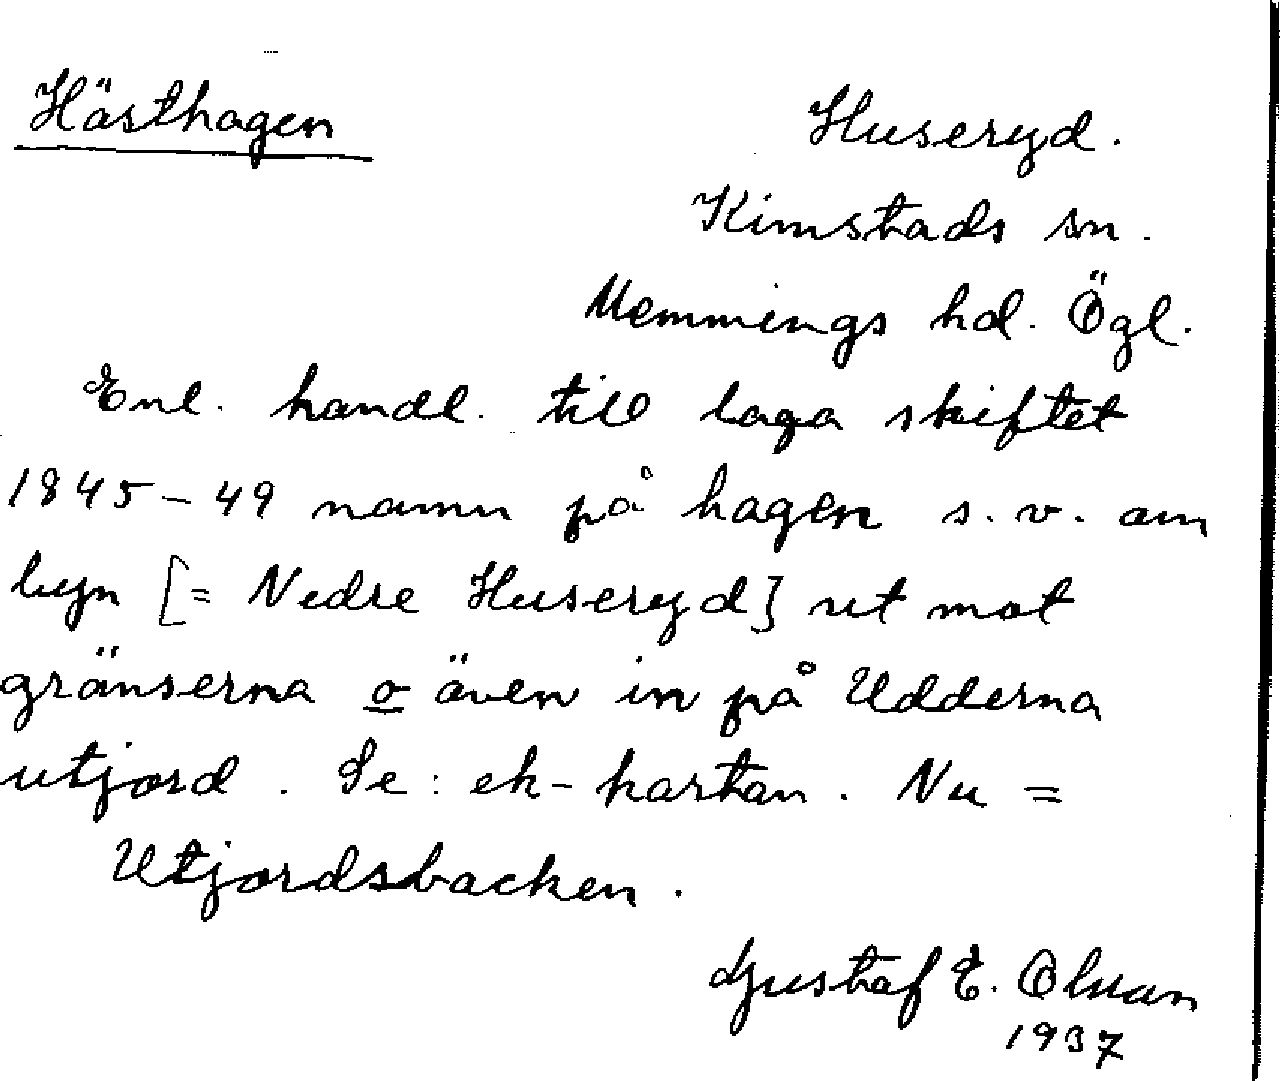 Hästhagen
Huseryd.
Kimstads sn.
Memmings hd. Ögl.
Enl. handl. till laga skiftet
1845-49 namn på hagen s. v. om
byn [= Nedre Huseryd] ut mot
gränserna o även in på Udderna
utjord. Se: ek-kartan. Nu =
Utjordsbacken.
Gustaf E. Olsson
1937